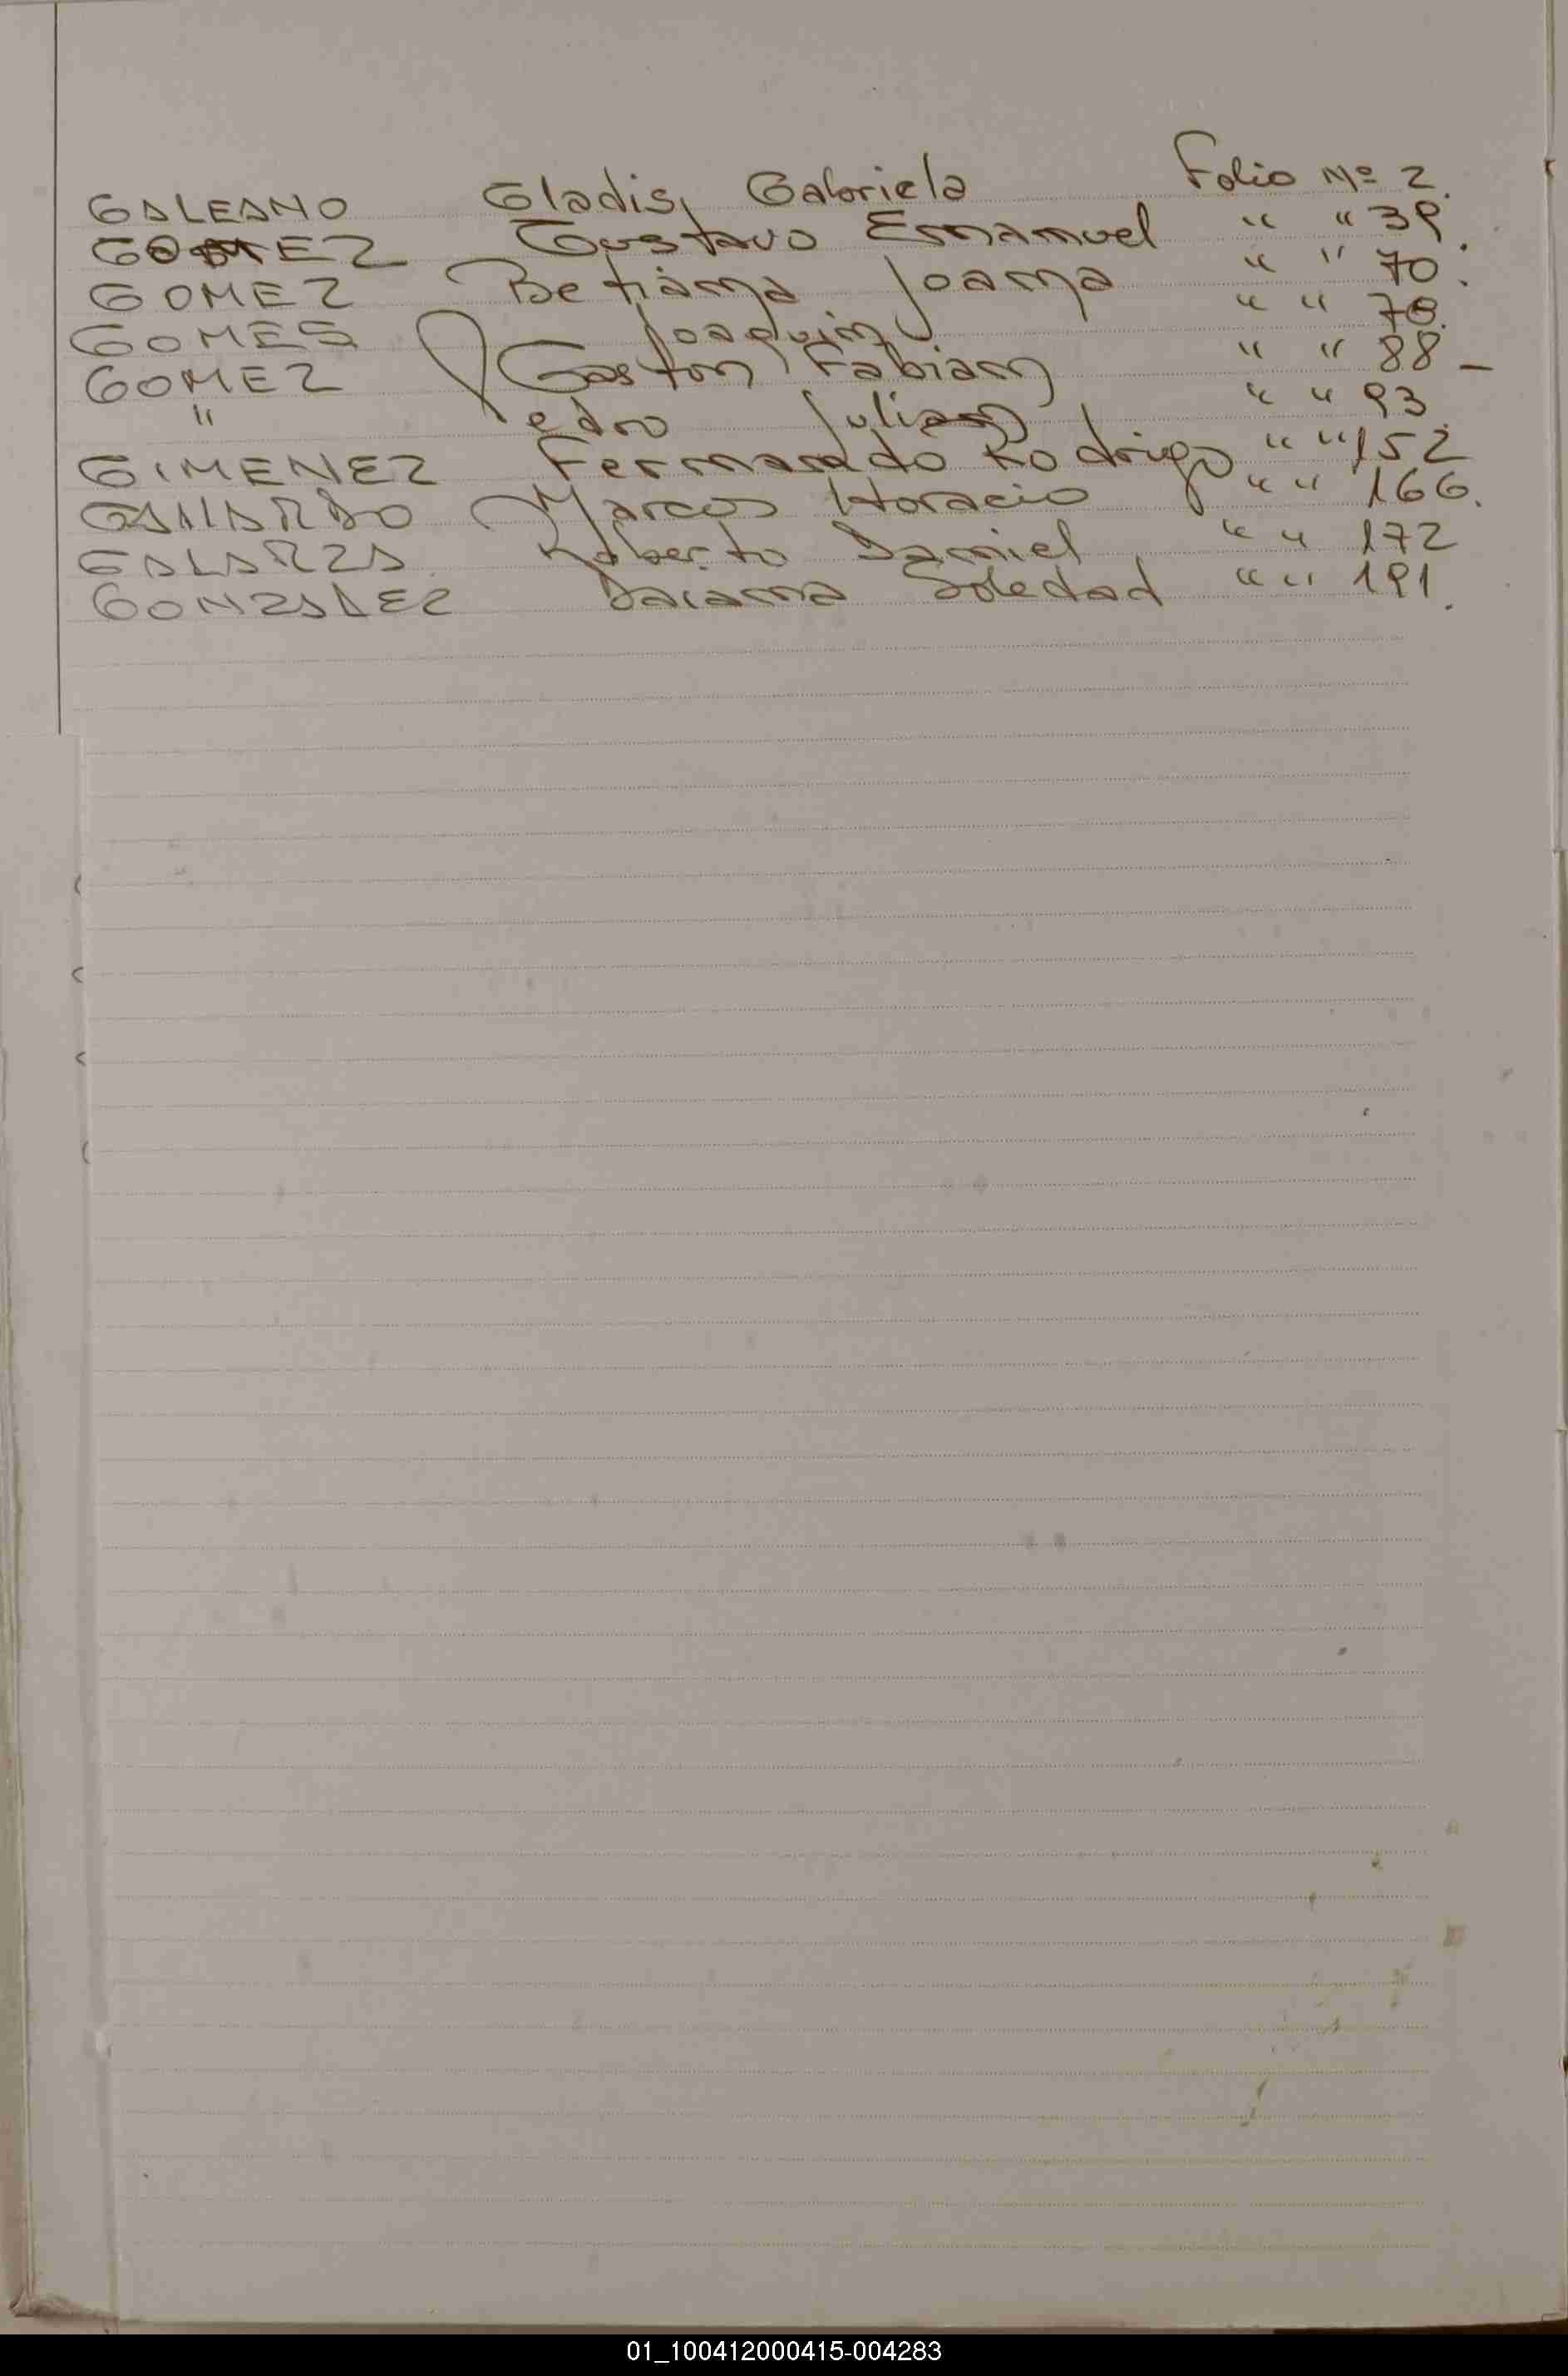 GALEANO Gladis, Gabriela Folio Nº 2.
GOMEZ Gustavo Emanuel " " 39.
GOMEZ Betiana Joana " " 70.
GOMES Joaquin " " 78.
GOMEZ Gaston Fabian " " 88 -
" Pedro Julian " " 93
GIMENEZ Fernando Rodrigo " " 152
GALLARDO Marcos Horacio " " 166.
GALARZA Roberto Daniel " " 172
GONZALEZ Daiana Soledad " " 191.
01_100412000415-004283